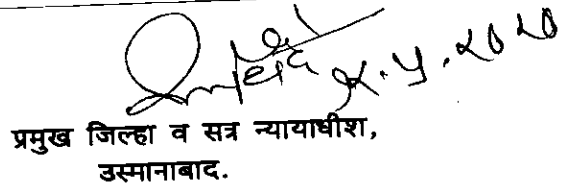 २.५.२०२०
प्रमुख जिल्हा व सत्र न्यायाधीश,
उस्मानाबाद.